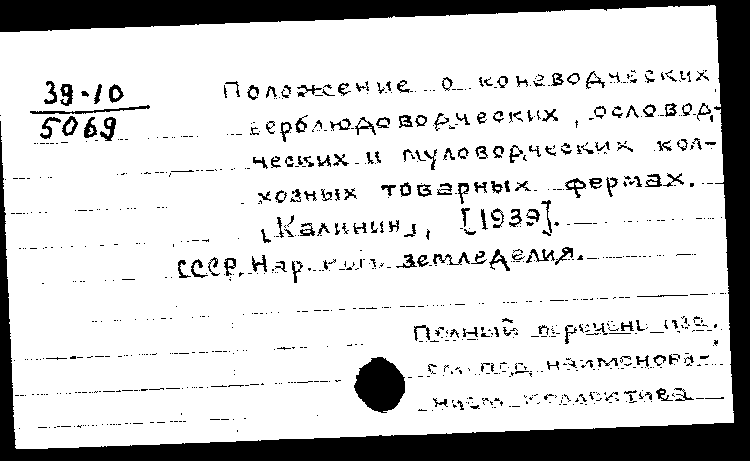 39-10
5069
Положение о коневодческих
верблюдоводческих,ословод-
ческих и муловодческих кол-
хозных товарных фермах.
[Калинин], [1939].
СССР. Нар. ком. земледелия.
Полный перечень изд.
см. под наименова-
нием коллектива